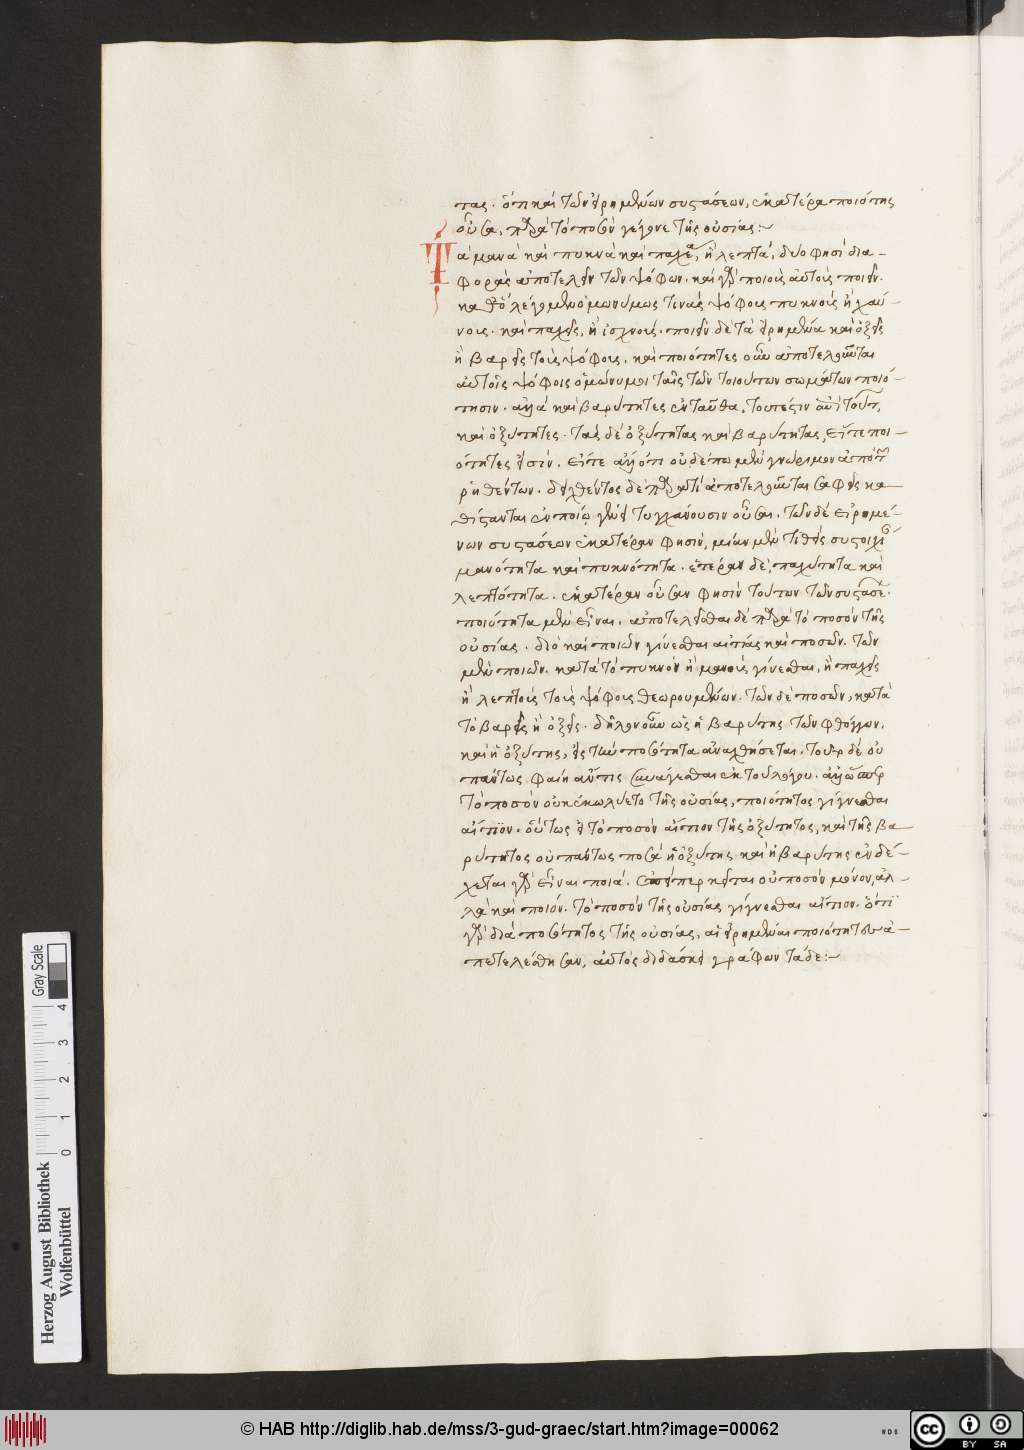 τας. ὅτι καὶ τῶν εἰρημένων συστάσεων, ἑκατέρα ποιότης
οὖσα, παρὰ τὸ ποσὸν γέγονε τῆς οὐσίας:~
Τὰ μανὰ καὶ πυκνὰ καὶ παχέα, ἢ λεπτά, δύο φησὶ δια-
φορὰς ἀποτελεῖν τῶν ψόφων. καὶ γὰρ ποιοὺς αὐτοὺς ποιεῖν.
καθὸ λέγομεν ὁμωνύμως τινὰς ψόφους πυκνοὺς ἢ χαύ-
νους. καὶ παχεῖς, ἢ ἰσχνούς. ποιεῖν δὲ τὰ εἰρημένα καὶ ὀξεῖς
ἢ βαρεῖς τοὺς ψόφους. καὶ ποιότητες οὖν ἀποτελοῦνται
αὐτοῖς ψόφοις ὁμώνυμοι ταῖς τῶν τοιούτων σωμάτων ποιό-
τησιν. ἀλλὰ καὶ βαρύτητες ἐνταῦθα, τουτέστιν
καὶ ὀξύτητες. τὰς δὲ ὀξύτητας καὶ βαρύτητας, εἴτε ποι-
ότητες εἰσίν. εἴτε μὴ ὅτι οὐδέπω μὲν γνώριμον ἀπὸ τῶν
ῥηθέντων. δειχθέντος δὲ παρὰ τί ἀποτελοῦνται σαφεῖς κα-
θίστανται ἐν ποίῳ γένει τυγχάνουσιν οὖσαι. τῶν δὲ εἰρημέ-
νων συστάσεων ἑκατέραν φησίν, μίαν μὲν τιθεὶς συστοιχίαν
μανότητα καὶ πυκνότητα. ἑτέραν δὲ, παχύτητα καὶ
λεπτότητα. ἑκατέραν οὖσαν φησὶν τούτων τῶν συστάσεων.
ποιότητα μὲν εἶναι. ἀποτελεῖσθαι δὲ παρὰ τὸ ποσὸν τῆς
οὐσίας. διὸ καὶ ποιῶν γίνεσθαι αἰτίας καὶ ποσῶν. τῶν
μὲν ποιῶν. κατὰ τὸ πυκνοὺς ἢ μανοὺς γίνεσθαι, ἢ παχεῖς
ἢ λεπτοὺς τοὺς ψόφους θεωρουμένων. τῶν δὲ ποσῶν, κατὰ
τὸ βαρεῖς ἢ ὀξεῖς. δῆλον οὖν ὡς ἡ βαρύτης τῶν φθόγγων.
καὶ ἡ ὀξύτης, εἰς τὴν ποσότητα ἀναχθήσεται. τοῦτο δὲ οὐ
πάντως φαίη ἄν τις συνάγεσθαι ἐκ τοῦ λόγου. ἀλλ' ὥσπερ
τὸ ποσὸν οὐκ ἐκωλύετο τῆς οὐσίας, ποιότητος γίγνεσθαι
αἴτιον. οὕτως εἰ τὸ ποσὸν αἴτιον τῆς ὀξύτητος, καὶ τῆς βα-
ρύτητος οὐ πάντως ποσὰ ἡ ὀξύτης καὶ ἡ βαρύτης ἐνδέ-
χεται γὰρ εἶναι ποιά. ὥσπερ κεῖται οὐ ποσὸν μόνον, ἀλ-
λὰ καὶ ποιόν. τὸ ποσὸν τῆς οὐσίας γίγνεσθαι αἴτιον. ὅτι
γὰρ διὰ ποσότητος τῆς οὐσίας, αἱ εἰρημέναι ποιότητες ἀ-
πετελέσθησαν, αὐτὸς διδάσκει γράφων τάδε:~
Herzog August Bibliothek
Wolfenbüttel
0 1 2 3 4
Gray Scale
© HAB http://diglib.hab.de/mss/3-gud-graec/start.htm?image=00062
cc BY SA